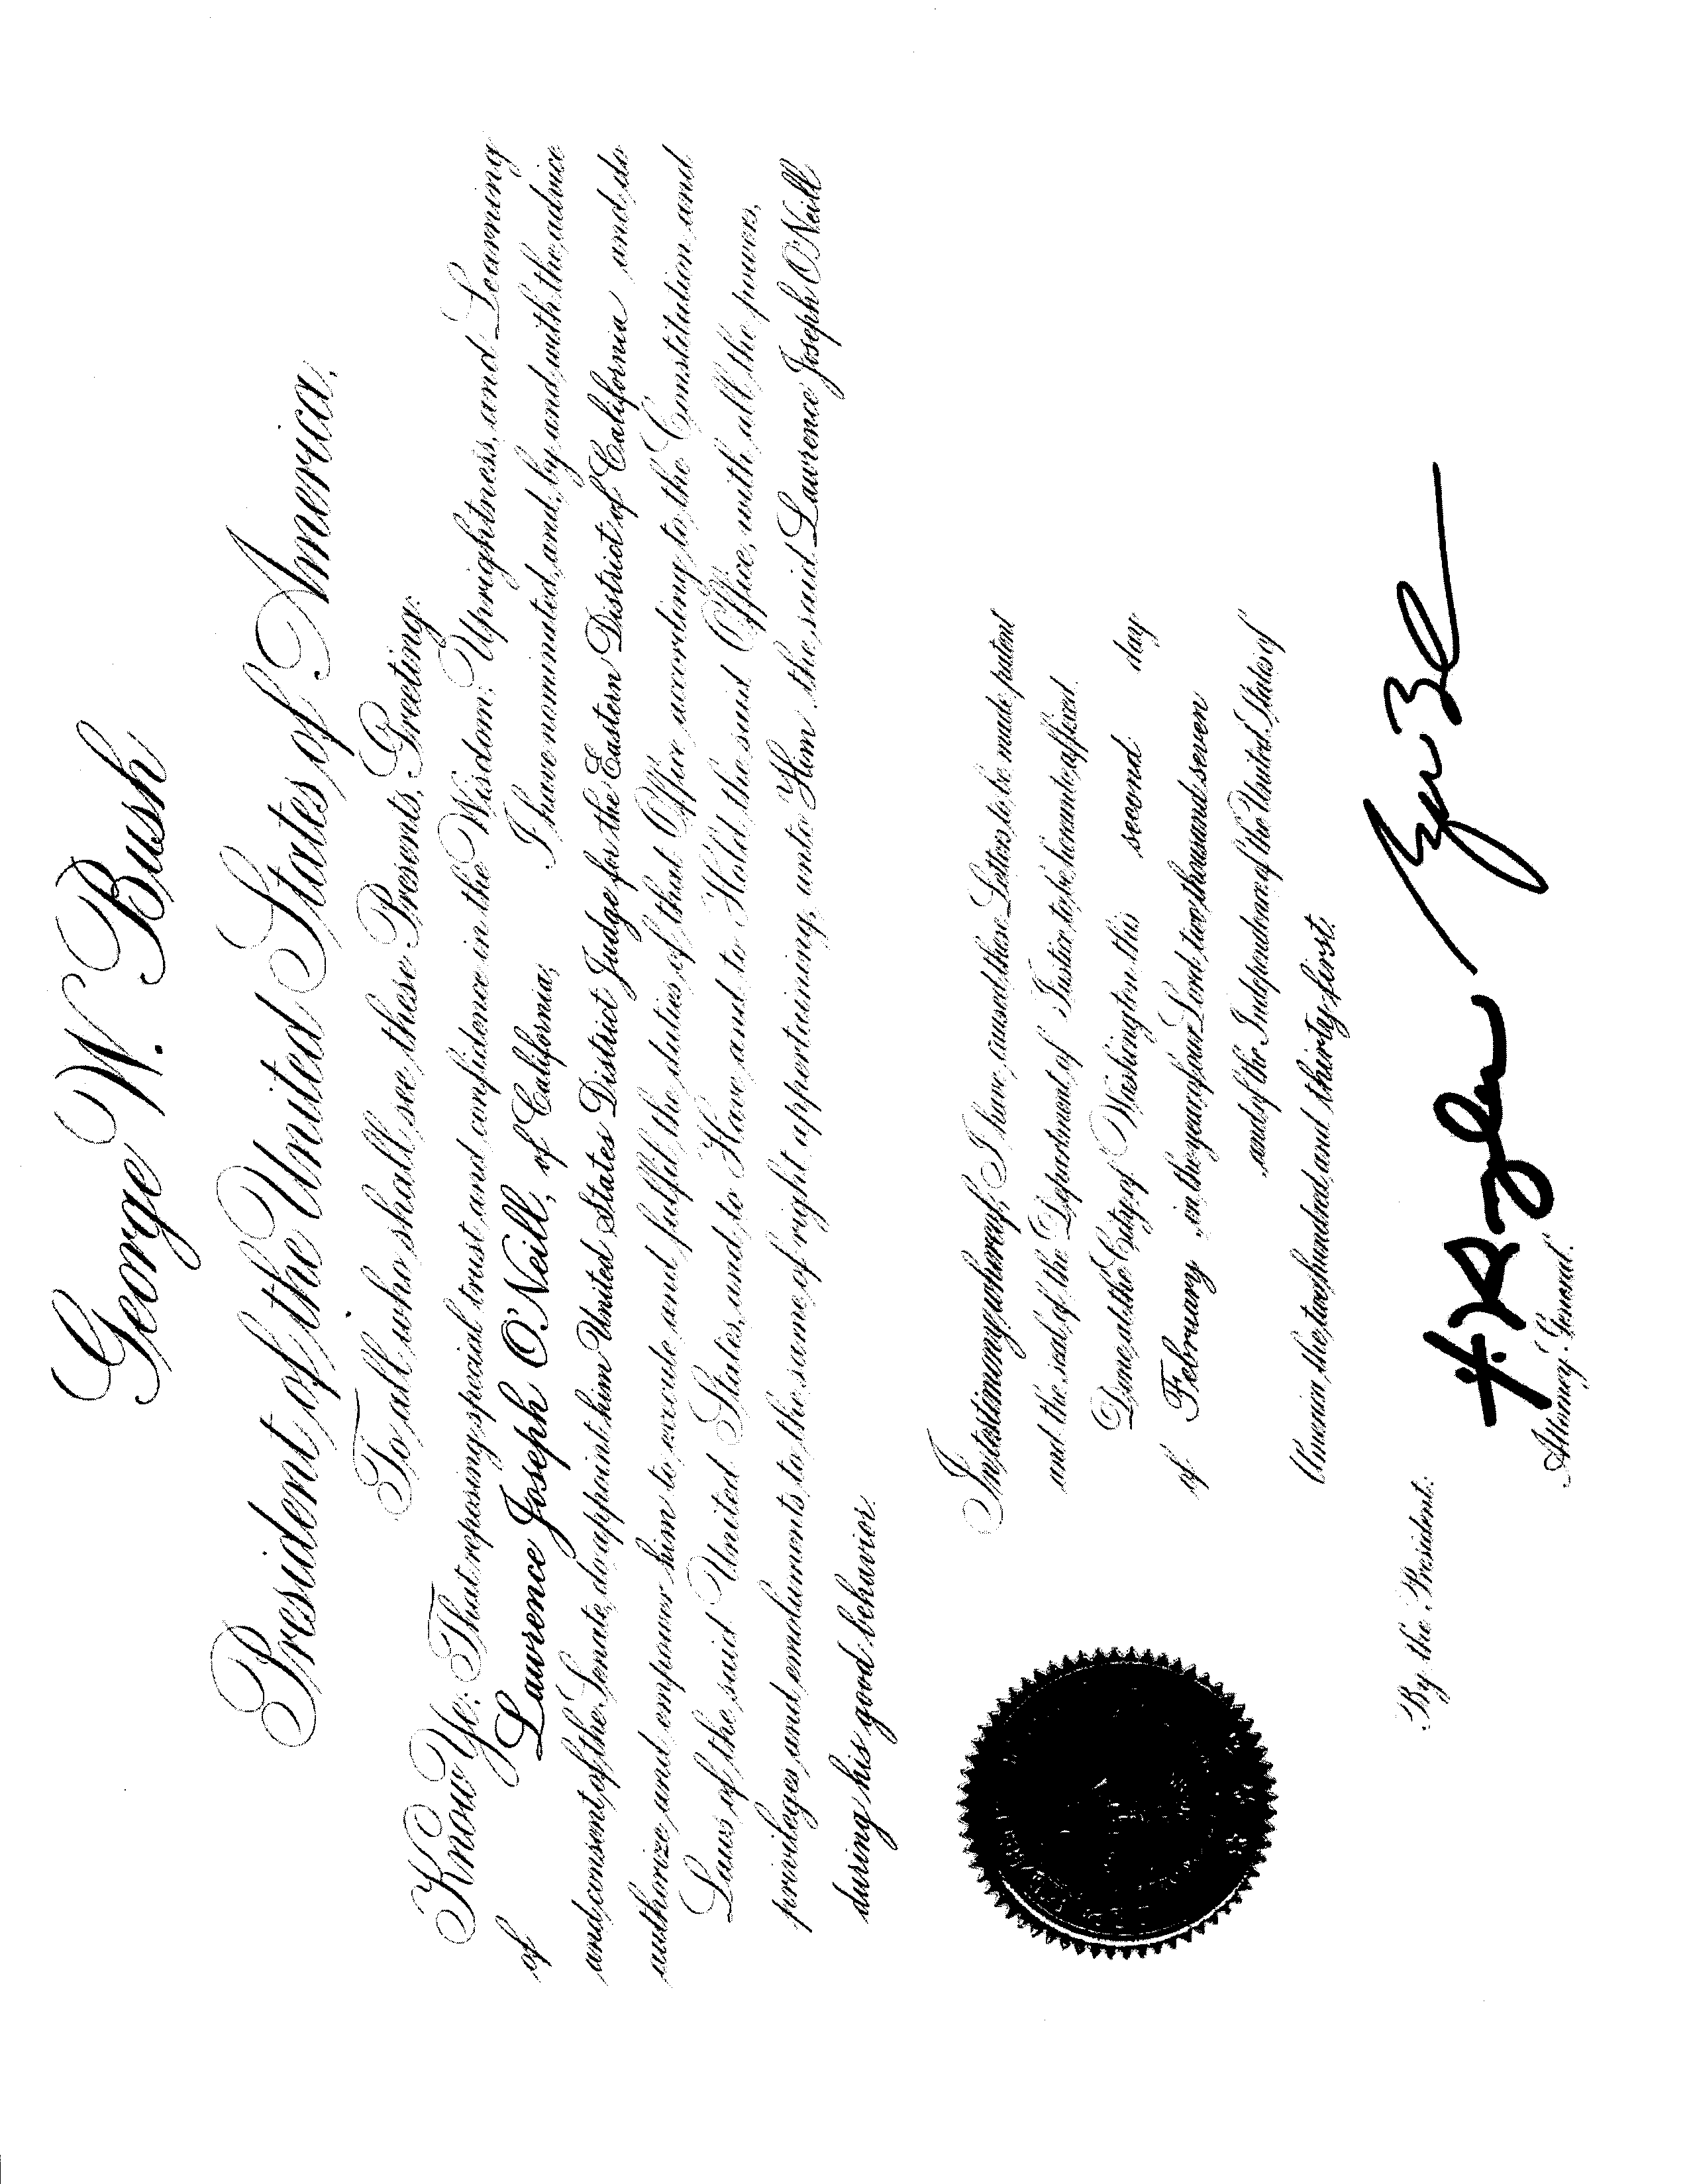 George W. Bush
President of the United States of America,
To all who shall see these Presents, Greeting:
Know Ye: That reposing special trust and confidence in the Wisdom, Uprightness, and Learning
of Lawrence Joseph O'Neill, of California, I have nominated, and, by and with the advice
and consent of the Senate, do appoint him United States District Judge for the Eastern District of California and do
authorize and empower him to execute and fulfil the duties of that Office according to the Constitution and
Laws of the said United States, and to Have and to Hold the said Office, with all the powers,
privileges and emoluments to the same of right appertaining, unto Him the said Lawrence Joseph O'Neill
during his good behavior.
In testimony whereof, I have caused these Letters to be made patent
and the seal of the Department of Justice to be hereunto affixed.
Done at the City of Washington this second day
of February in the year of our Lord two thousand seven
and of the Independence of the United States of
America the two hundred and thirty-first.
By the President:
Attorney General.